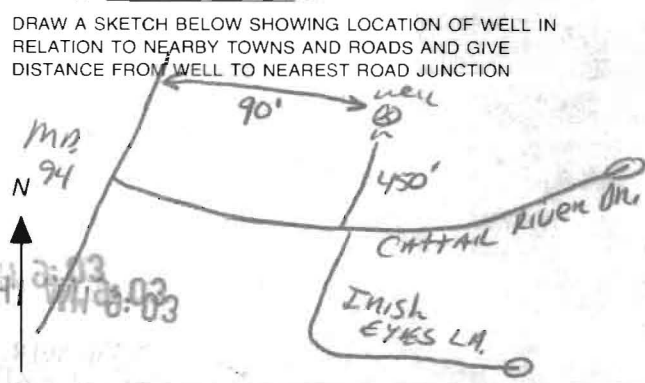 DRAW A SKETCH BELOW SHOWING LOCATION OF WELL IN
RELATION TO NEARBY TOWNS AND ROADS AND GIVE
DISTANCE FROM WELL TO NEAREST ROAD JUNCTION
well
90'
MD.
94
450'
N
CATTAIL RIVER DR.
IRISH
EYES LA.